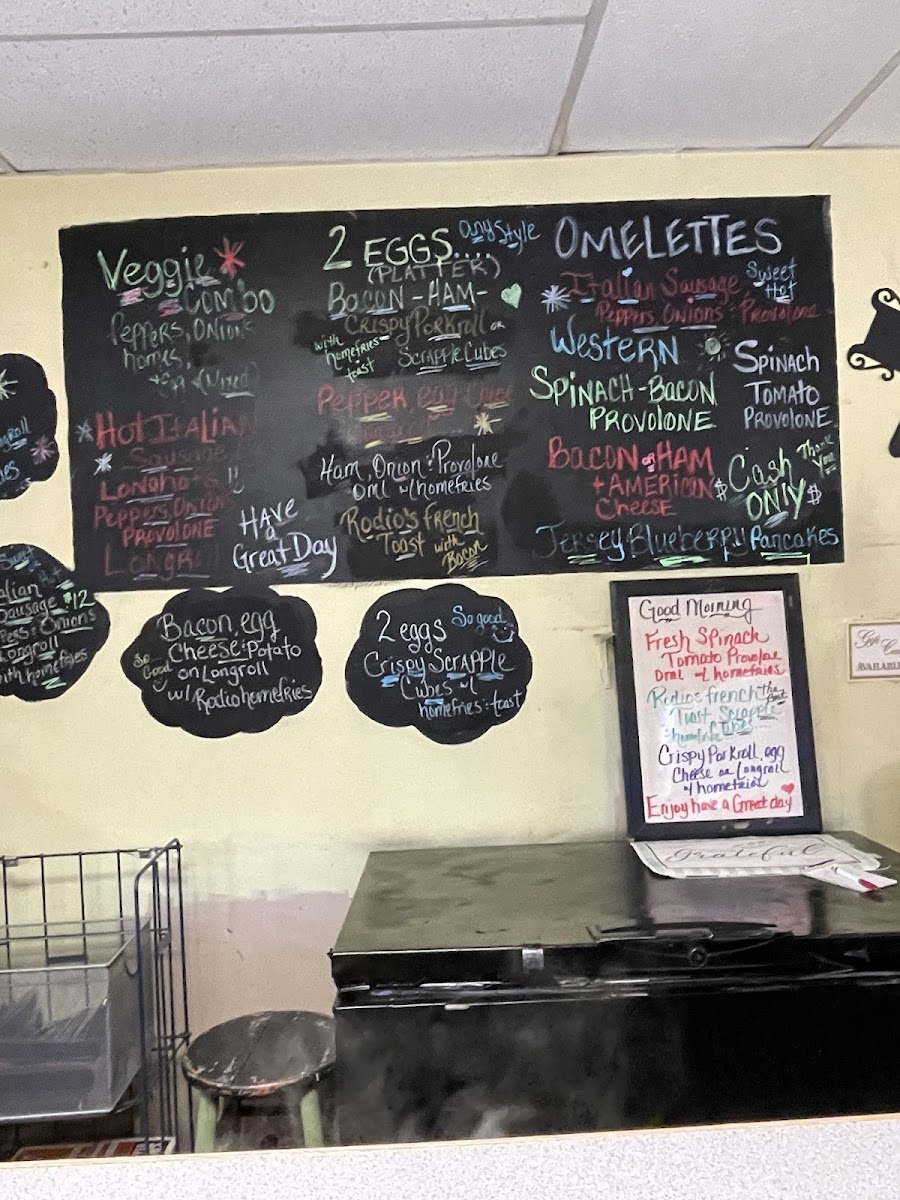 Veggie
Combo
Peppers, Onions
homfs,
(Mixed)
Hot Italian
Sausage
Longhots
Peppers, Onions
PROVOLONE
Longroll
HAVE
a
Great Day
2 EGGS.... any Style
(PLATTER)
BACON - HAM -
CRISPY PorKroll or
with
homefries
toast
SCRAPPLE CUBES
PEPPER egg
Ham, Onion : Provolone
oml w/ homefries
Rodio's french
Toast with
Bacon
OMELETTES
Italian Sausage Sweet
Hot
Peppers Onions : Provolone
WesteRN
SPiNACH - BACON
PROVOLONE
SPINACH
TOMATO
PROVOLONE
BACON or HAM
+ AMERICAN
CHEESE
Thank
You
$ Cash $
ONLY
Jersey Blueberry Pancakes
Sweet
Sausage $12
Onions
Longroll
with homefries
Bacon, egg
Cheese : Potato
So
Good
on Longroll
w/ Rodio homefries
2 eggs So good
Crispy SCRAPPLE
Cubes w/
homefries : toast
Good Morning
Fresh Spinach
Tomato Provolone
Oml w/ homefries
Rodios french The Best
Toast Scrapple
Cubes
Crispy PorKroll, egg
Cheese on Longroll
w/ homefries
Enjoy have a Great day
grateful
Gift
AVAILABLE